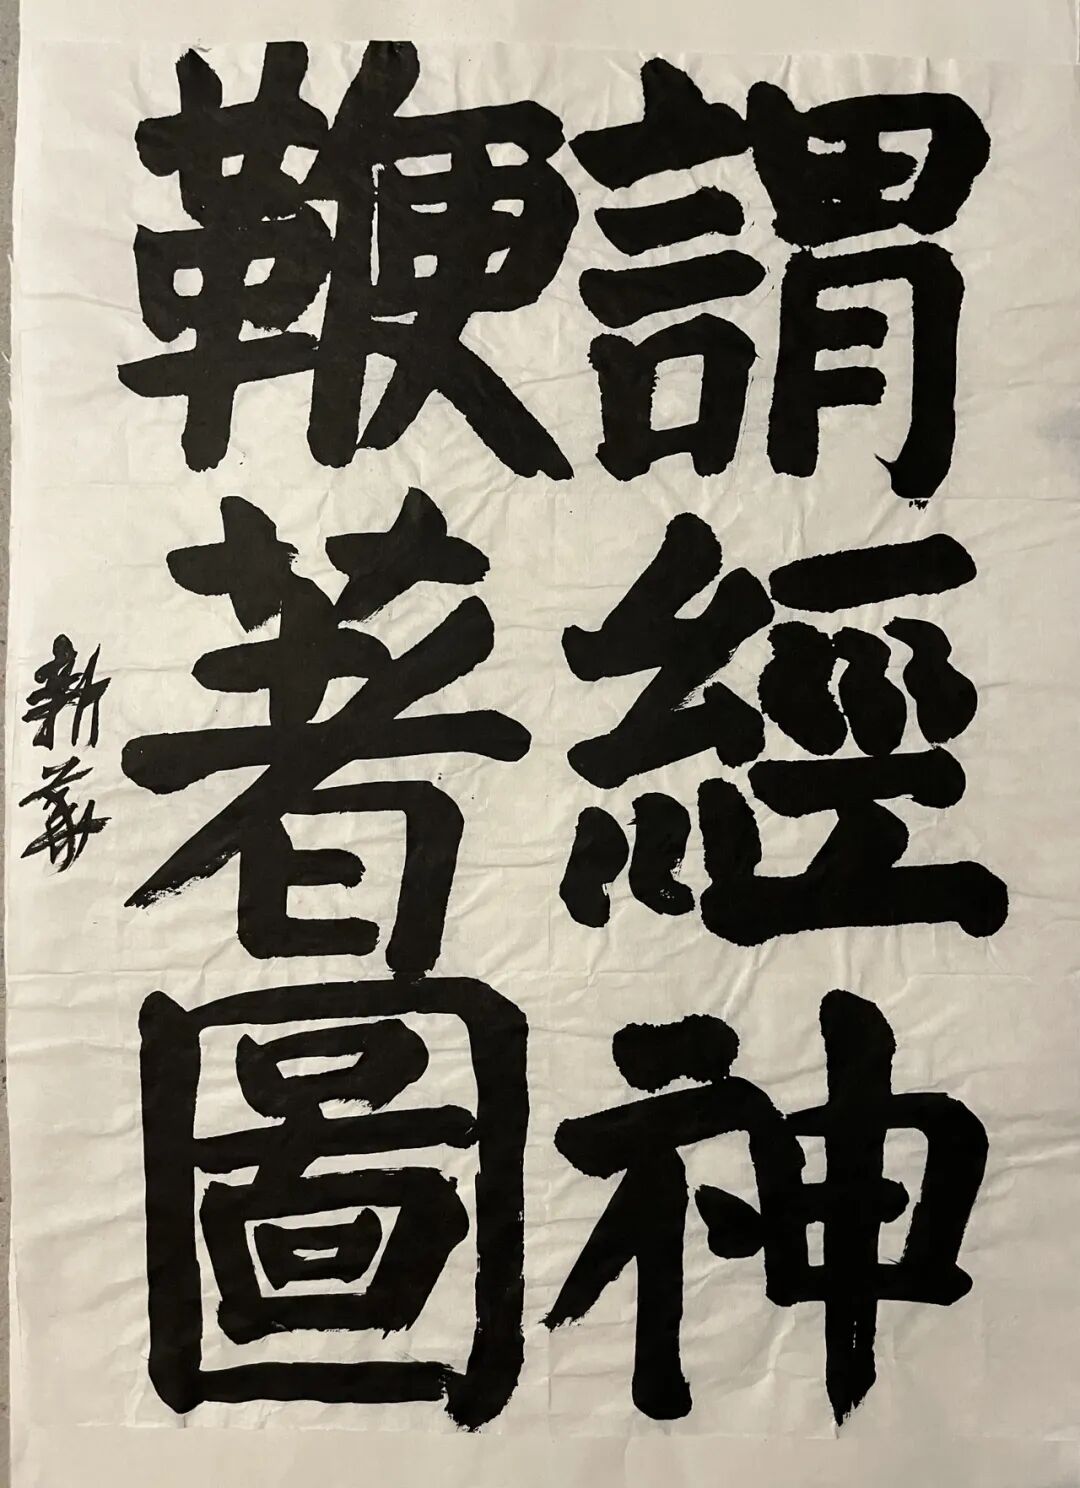 謂經神
鞭著圖
新義